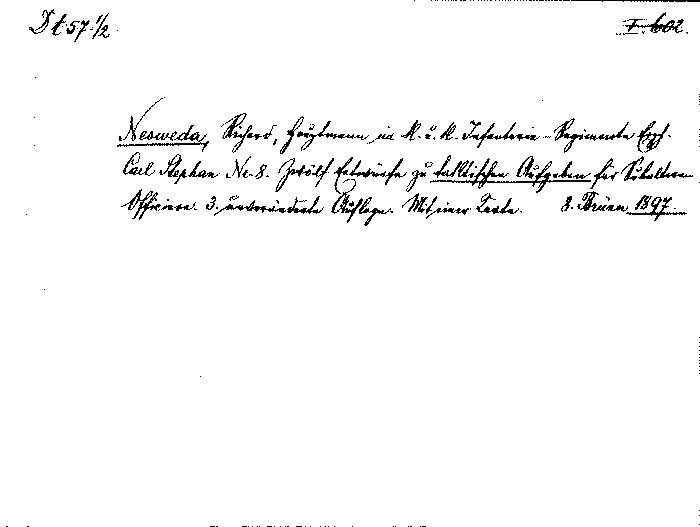 Dt 57 1/2
I 602.
Nesweda, Richard, Hauptmann im K. u. K. Infanterie-Regimente Erzh.
Carl Stephan Nr. 8. Zwölf Entwürfe zu taktischen Aufgaben für Subaltern-
Officiere. 3. unveränderte Auflage. Mit einer Karte. 8. Brünn 1897